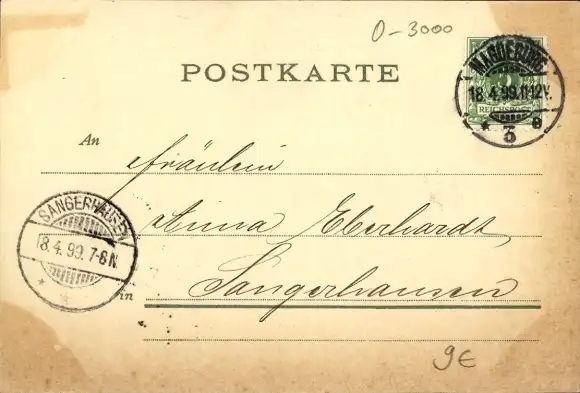 O-3000
POSTKARTE
MAGDEBURG
18.4.99.11-12V.
REICHSPOST
* 3 e
An
Fräulein
Anna Eberhardt,
SANGERHAUSEN
18.4.99.7-8N.
in
Sangerhausen
9€